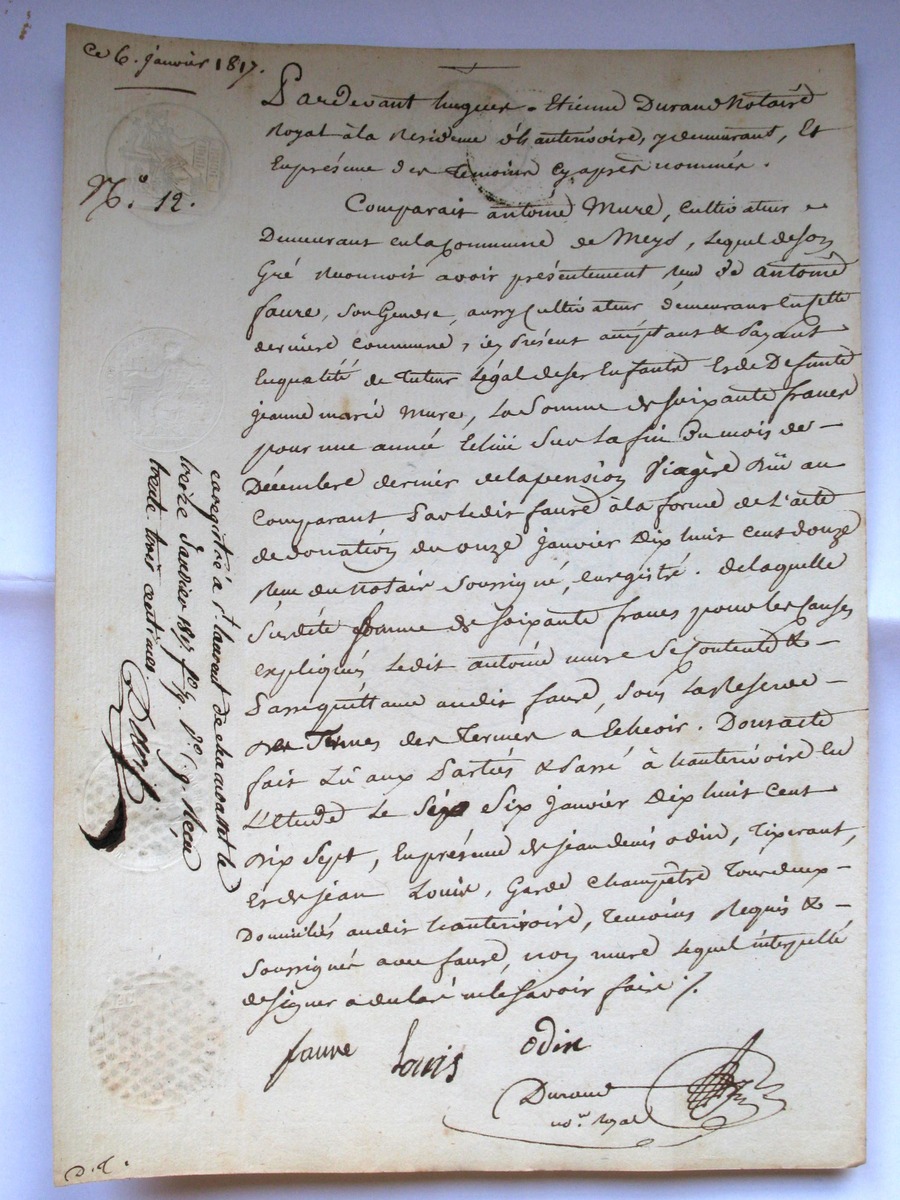 Ce 6. janvier 1817.
N.° 12.
Pardevant hugues - Etienne Durand Notaire
Royal à la Residence d'hauterivoire, y demeurant, Et
En présence des Temoins cy après nommés.
Comparait antoine Mure, Cultivateur
Demeurant en la Commune de Meys, Lequel de son
Gré Reconnoit avoir présentement reçu de antoine
faure, son Gendre, aussy Cultivateur demeurant en cette
derniere commune, icy présent acceptant & Payant
En qualité de Tuteur Légal de ses Enfants Et de Defunte
jeanne marie Mure, La Somme de soixante francs
pour une année Echue Sur la fin Du mois de -
Décembre dernier de la pension Viagère Düe au
Comparant Par ledit faure à la forme de L'acte
de donation du onze janvier Dix huit cent douze
Reçu du Notaire Soussigné, enregistré. de laquelle
Susdite Somme de soixante francs pour les Causes
expliquées Ledit antoine mure Se Contente & -
Passe quittance audit faure, sous La Reserve -
des Termes à Echeoir. Dont acte
fait Lû aux Parties & Passé à hauterivoire En
L'étude Le Six janvier Dix huit cent
Dix Sept, En présence de jean denis odin, Tixerant,
Et de jean Louis, Garde Champêtre Tous deux -
Domiciliés audit hauterivoire, Temoins Requis & -
Soussignés avec faure, non mure Lequel interpellé
de signer a declaré ne le Savoir faire ./.
faure Louis odin
Durand
no.re royal
enregistré à s.t Laurent de chamousset le
treize Janvier 1817 f.° Reçu
trente trois centimes.